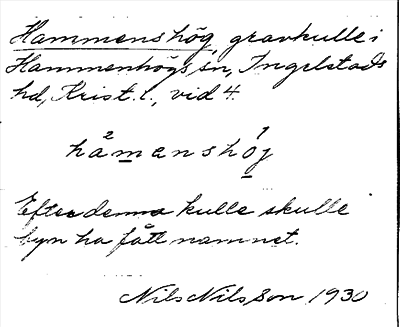 Hammenshög, gravkulle i
Hammenhögs sn, Ingelstads
hd, Krist. l., vid 4.
ha²menshö¹j
Efter denna kulle skulle
byn ha fått namnet.
Nils Nilsson 1930